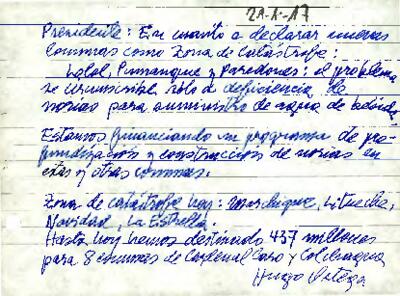 21-X-17
Presidente: En cuanto a declarar nuevas
comunas como Zona de Catástrofe:
Lolol, Pumanque y Paredones: el problema
se circunscribe sólo a deficiencia de
norias para suministro de agua de bebida.
Estamos financiando un programa de pro-
fundización y construcción de norias en
estas y otras comunas.
Zona de catástrofe hoy: Marchigüe, Litueche,
Navidad, La Estrella.
Hasta hoy hemos destinado 437 millones
para 8 comunas de Cardenal Caro y Colchagua
Hugo Ortega